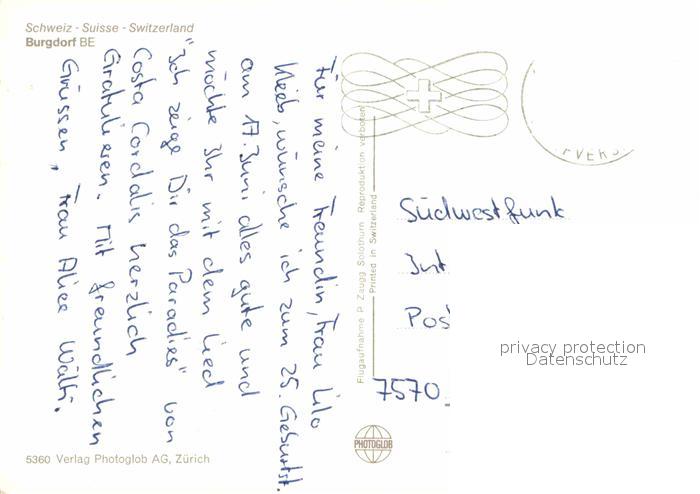 Schweiz - Suisse - Switzerland
Burgdorf BE
Für meine Freundin, Frau Lilo
Kleeb, wünsche ich zum 25. Geburtst.
am 17. Juni alles gute und
möchte Ihr mit dem Lied
"Ich zeige Dir das Paradies" von
Costa Cordalis herzlich
Gratulieren. Mit freundlichen
Grüssen, Frau Alice Wälti.
Flugaufnahme P. Zaugg, Solothurn Reproduktion verboten
Printed in Switzerland
Südwestfunk
Int
Pos
7570
privacy protection
Datenschutz
PHOTOGLOB
5360 Verlag Photoglob AG, Zürich